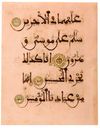 عليهما في الاخرين
سلم على موسى و
هرون انا كذلك
نجزي المحسنين انهما
من عبادنا المومنين